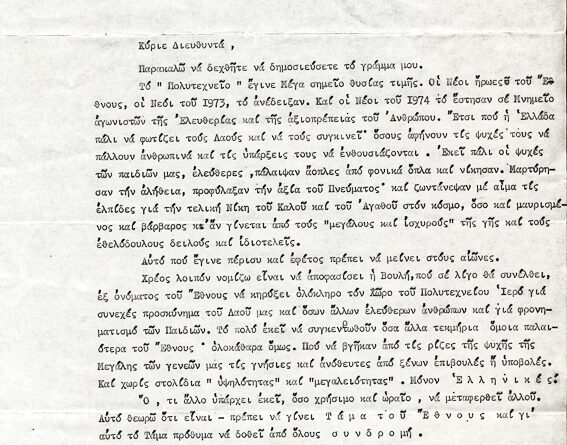 Κύριε Διευθυντά ,
Παρακαλῶ νά δεχθῆτε νά δημοσιεύσετε τό γράμμα μου.
Τό " Πολυτεχνεῖο " ἔγινε Μέγα σημεῖο θυσίας τιμῆς. Οἱ Νέοι ἥρωες τοῦ Ἔ-
θνους, οἱ Νέοι τοῦ 1973, τό ἀνέδειξαν. Καί οἱ Νέοι τοῦ 1974 τό ἔστησαν σέ Μνημεῖο
ἀγωνιστῶν τῆς Ἐλευθερίας καί τῆς ἀξιοπρέπειάς τοῦ Ἀνθρώπου. Ἔτσι πού ἡ Ἑλλάδα
πάλι νά φωτίζει τούς Λαούς καί νά τούς συγκινεῖ ὅσους ἀφήνουν τίς ψυχές τους νά
πάλλουν ἀνθρωπινά καί τίς ὑπάρξεις τους νά ἐνθουσιάζονται . Ἐκεῖ πάλι οἱ ψυχές
τῶν παιδιῶν μας, ἐλεύθερες ,πάλαιψαν ἄοπλες ἀπό φονικά ὅπλα καί νίκησαν. Μαρτύρη-
σαν τήν ἀλήθεια, προφύλαξαν τήν ἀξία τοῦ Πνεύματος καί ζωντάνεψαν μέ αἷμα τίς
ἐλπίδες γιά τήν τελική Νίκη τοῦ Καλοῦ καί τοῦ Ἀγαθοῦ στόν κόσμο, ὅσο καί μαυρισμέ-
νος καί βάρβαρος κι'ἄν γίνεται ἀπό τούς "μεγάλους καί ἰσχυρούς" τῆς γῆς καί τούς
ἐθελόδουλους δειλούς καί ἰδιοτελεῖς.
Αὐτό πού ἔγινε πέρισυ καί ἐφέτος πρέπει νά μείνει στούς αἰῶνες.
Χρέος λοιπόν νομίζω εἶναι νά ἀποφασίσει ἡ Βουλή,πού σέ λίγο θά συνέλθει,
ἐξ ὀνόματος τοῦ Ἔθνους νά κηρύξει ὁλόκληρο τόν Χῶρο τοῦ Πολυτεχνείου Ἱερό γιά
συνεχές προσκύνημα τοῦ Λαοῦ μας καί ὅσων ἄλλων ἐλεύθερων ἀνθρώπων καί γιά φρονη-
ματισμό τῶν Παιδιῶν. Τό πολύ ἐκεῖ νά συγκεντρωθοῦν ὅσα ἄλλα τεκμήρια ὅμοια παλαι-
ότερα τοῦ Ἔθνους ὁλοκάθαρα ὅμως. Πού νά βγῆκαν ἀπό τίς ρίζες τῆς ψυχῆς τῆς
Μεγάλης τῶν γενεῶν μας τίς γνήσιες καί ἀνόθευτες ἀπό ξένων ἐπιβουλές ἤ ὑποβολές.
Καί χωρίς στολίδια "ὑψηλότητας" καί "μεγαλειότητας" . Μόνον Ἑλληνικές.
Ὅ , τι ἄλλο ὑπάρχει ἐκεῖ, ὅσο χρήσιμο καί ὡραῖο , νά μεταφερθεῖ ἀλλοῦ.
Αὐτό θεωρῶ ὅτι εἶναι - πρέπει νά γίνει Τάμα τοῦ Ἔθνους καί γι'
αὐτό τό Τάμα πρόθυμα νά δοθεῖ ἀπό ὅλους συνδρομή .